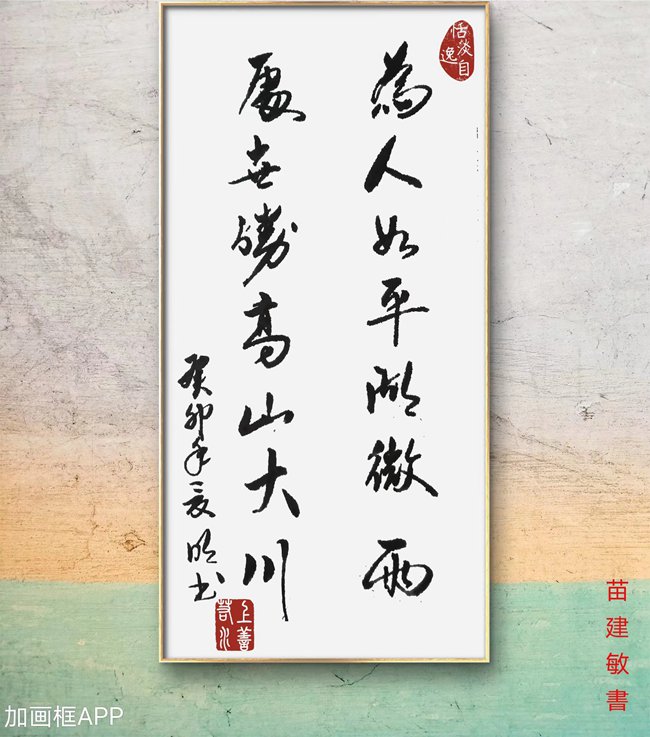 恬淡自逸
為人如平湖微雨
處世勝高山大川
癸卯年三友明书
上善若水
苗建敏書
加画框APP